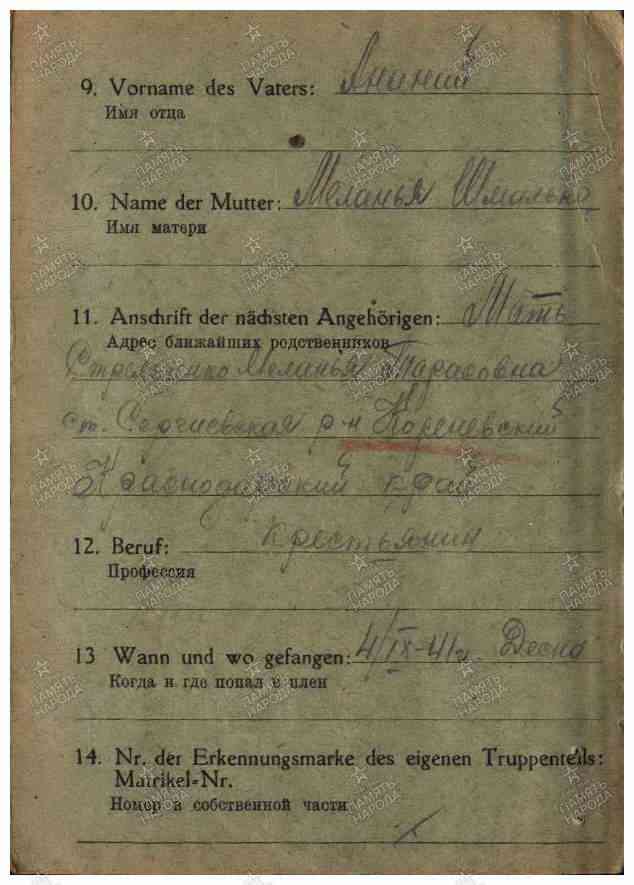 9. Vorname des Vaters: Ананий
Имя отца
10. Name der Mutter: Меланья Шмалько
Имя матери
11. Anschrift der nächsten Angehörigen: Мать
Адрес ближайших родственников
Меланья Тарасовна
ст. Сергиевская р-н Кореневский
Краснодарский край
12. Beruf: Крестьянин
Профессия
13 Wann und wo gefangen: 4/IX-41г. Десна
Когда и где попал в плен
14. Nr. der Erkennungsmarke des eigenen Truppenteils:
Matrikel-Nr.
Номер в собственной части
ПАМЯТЬ НАРОДА